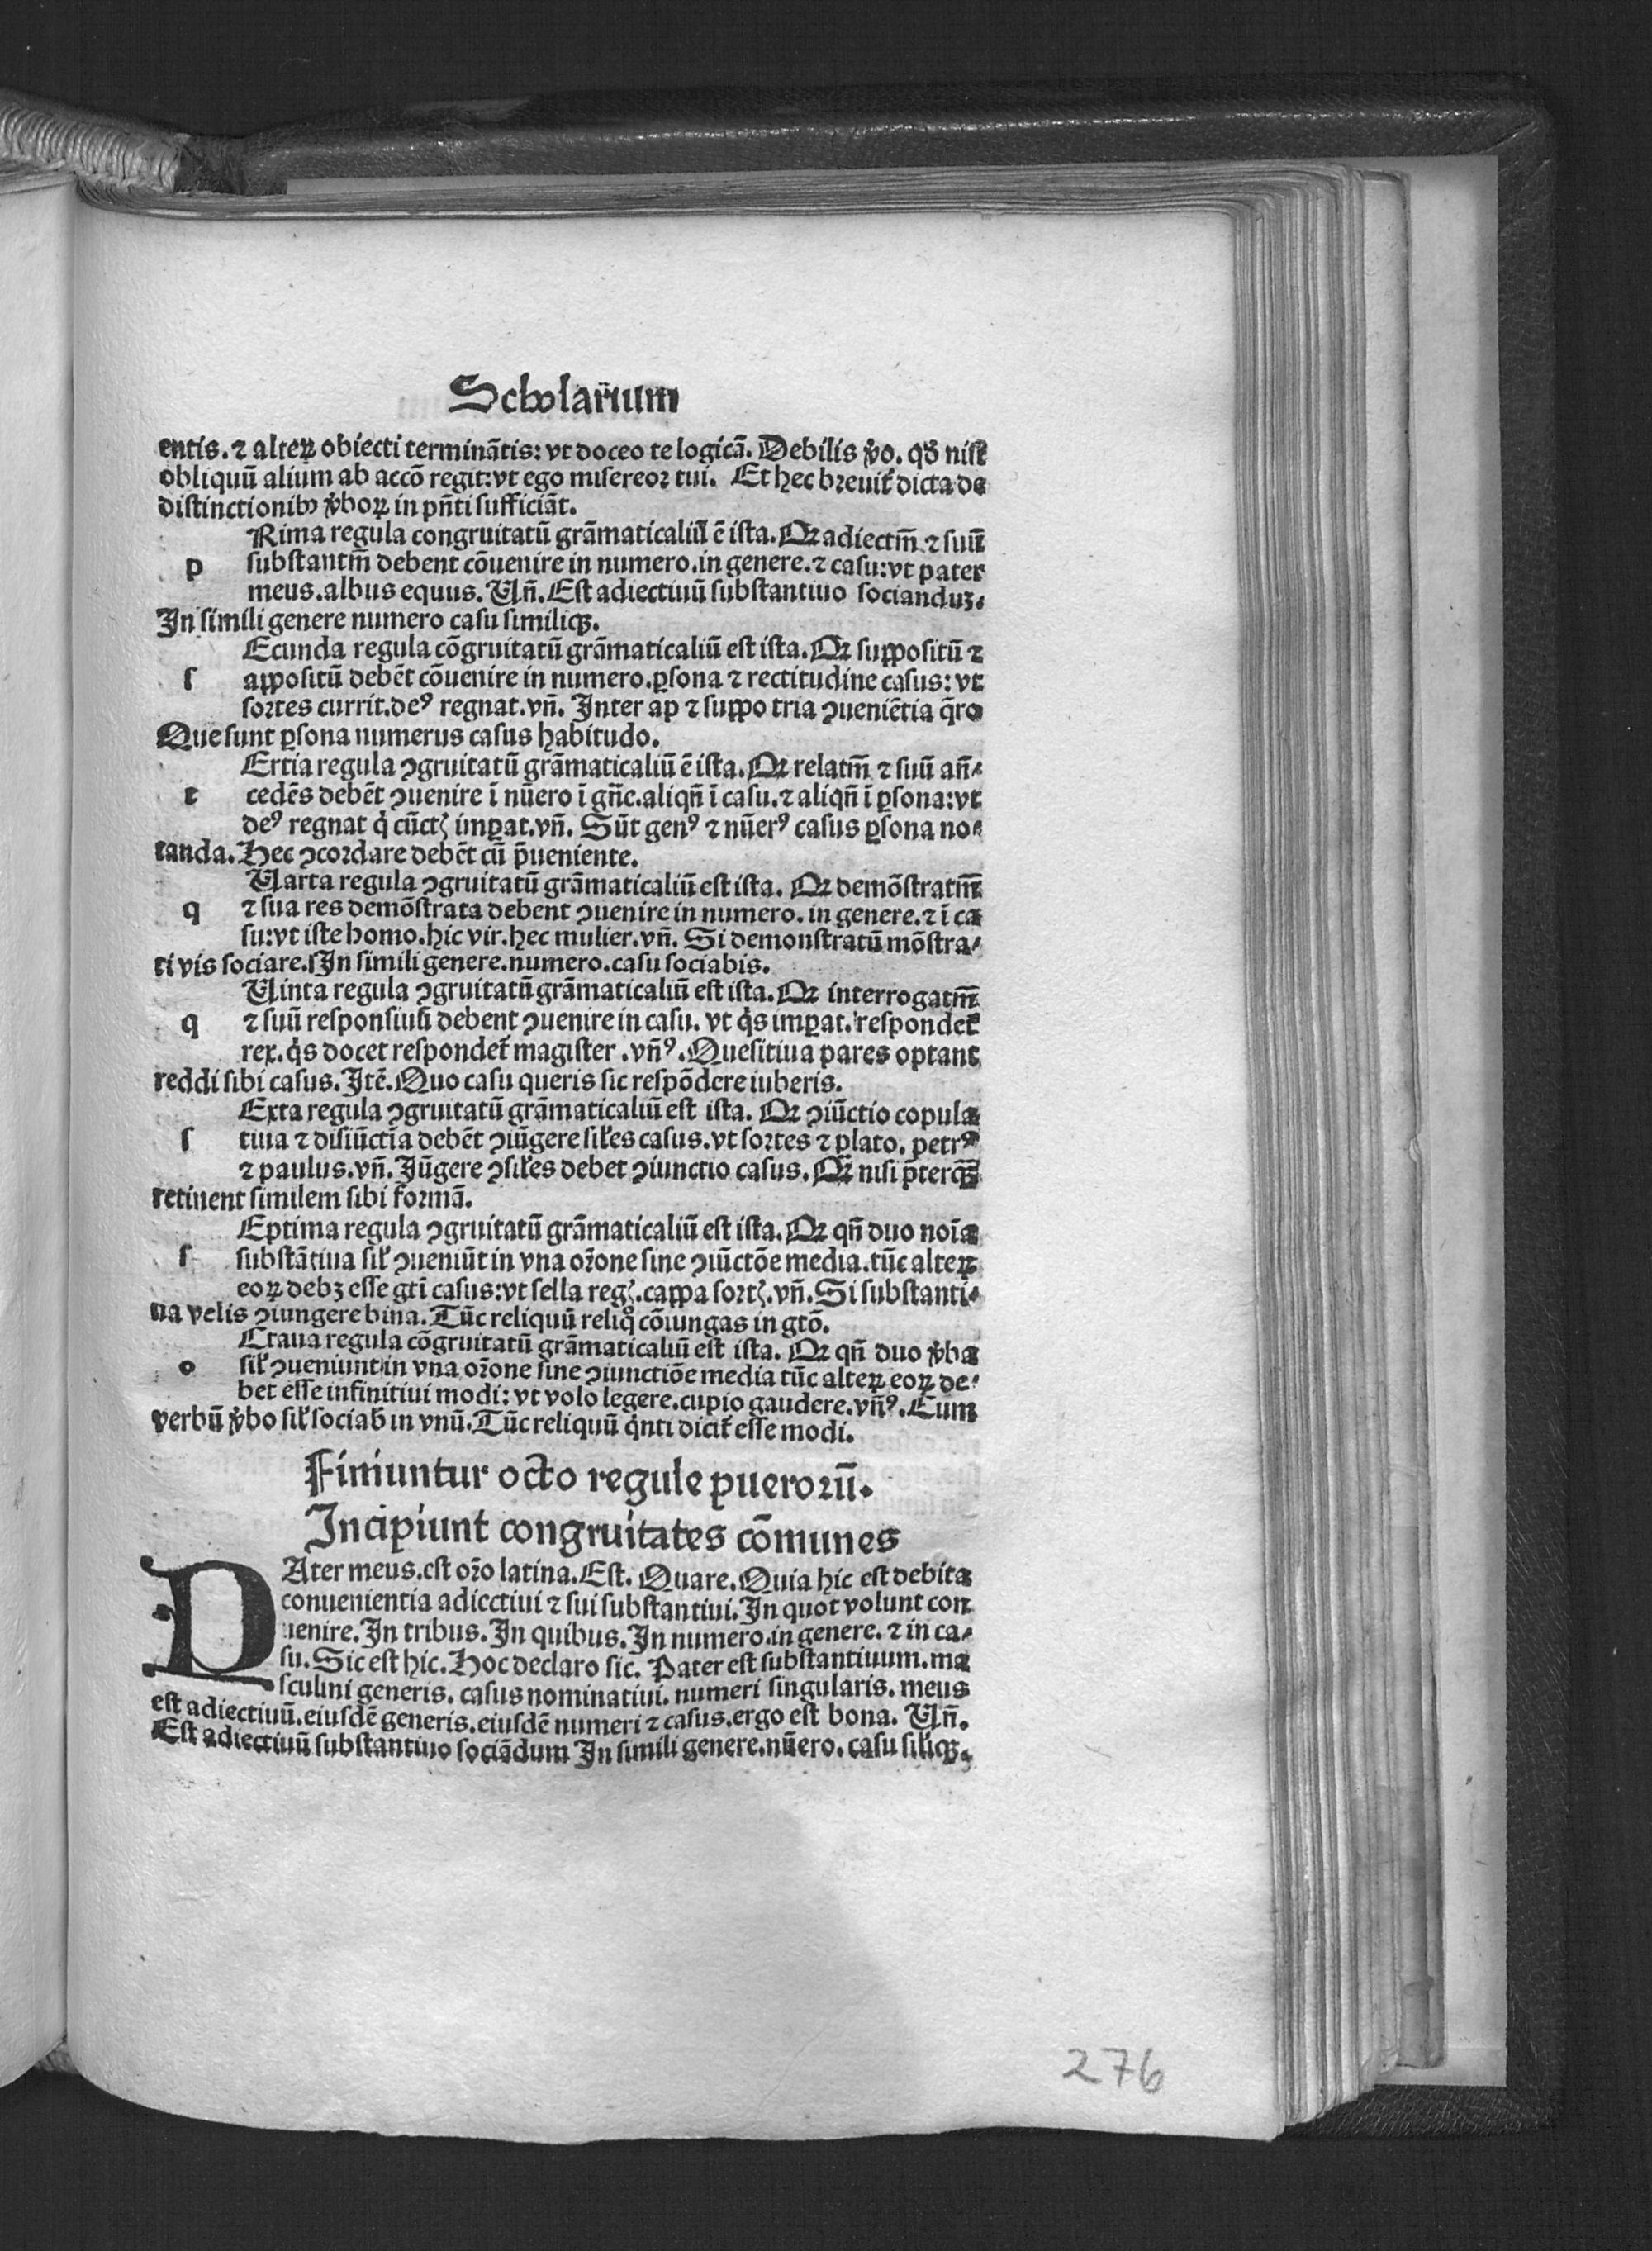 Scholarium
entis. ⁊ alteꝝ obiecti terminātis: vt doceo te logicā. Debilis v̊o. qđ nisi
obliquū alium ab accō regit: vt ego misereor tui. Et hec breuit̄ dicta de
distinctionibꝰ v̊boꝝ in pn̄ti sufficiāt.
Rima regula congruitatū grāmaticaliū ē ista. Qꝛ adiectm̄ ⁊ suū
p substantm̄ debent cōuenire in numero. in genere. ⁊ casu: vt pater
meus. albus equus. Vn̄. Est adiectiuū substantiuo socianduꝫ.
In simili genere numero casu similiqꝫ.
Ecunda regula cōgruitatū grāmaticaliū est ista. Qꝛ suppositū ⁊
ſ appositū debēt cōuenire in numero. ꝑsona ⁊ rectitudine casus: vt
sortes currit. deꝰ regnat. vn̄. Inter ap ⁊ suppo tria ꝯueniētia q̄ro
Que sunt ꝑsona numerus casus habitudo.
Ertia regula ꝯgruitatū grāmaticaliū ē ista. Qꝛ relatm̄ ⁊ suū an̄⸗
t cedēs debēt ꝯuenire ī nūero ī gn̄e. aliqn̄ ī casu. ⁊ aliqn̄ ī ꝑsona: vt
deꝰ regnat q̇ cūctꝭ imꝑat. vn̄. Sūt genꝰ ⁊ nūerꝰ casus ꝑsona no⸗
tanda. Hec ꝯcordare debēt cū p̄ueniente.
Uarta regula ꝯgruitatū grāmaticaliū est ista. Qꝛ demōstratm̄
q ⁊ sua res demōstrata debent ꝯuenire in numero. in genere. ⁊ ī ca
su: vt iste homo. hic vir. hec mulier. vn̄. Si demonstratū mōstra⸗
ti vis sociare. In simili genere. numero. casu sociabis.
Uinta regula ꝯgruitatū grāmaticaliū est ista. Qꝛ interrogatm̄
q ⁊ suū responsiuū debent ꝯuenire in casu. vt q̇s imꝑat. respondet̄
rex. q̇s docet respondet̄ magister. vn̄ꝰ. Quesitiua pares optant
reddi sibi casus. Itē. Quo casu queris sic respōdere iuberis.
Exta regula ꝯgruitatū grāmaticaliū est ista. Qꝛ ꝯiūctio copula
ſ tiua ⁊ disiūctīa debēt ꝯiūgere siłes casus. vt sortes ⁊ plato. petrꝰ
⁊ paulus. vn̄. Iūgere ꝯsiłes debet ꝯiunctio casus. Qn̄ nisi p̄terqꝫ
retinent similem sibi formā.
Eptima regula ꝯgruitatū grāmaticaliū est ista. Qꝛ qn̄ duo noīa
ſ substātiua sił ꝯueniūt in vna or̄one sine ꝯiūctōe media. tūc alteꝝ
eoꝝ debꝫ esse gtī casus: vt sella regꝭ. cappa sortꝭ. vn̄. Si substanti⸗
ua velis ꝯiungere bina. Tūc reliquū reliq̊ cōiungas in gtō.
Ctaua regula cōgruitatū grāmaticaliū est ista. Qꝛ qn̄ duo v̊ba
o sił ꝯueniunt in vna or̄one sine ꝯiunctiōe media tūc alteꝝ eoꝝ de⸗
bet esse infinitiui modi: vt volo legere. cupio gaudere. vn̄ꝰ. Cum
verbū v̊bo sił sociab̄ in vnū. Tūc reliquū q̇nti dicit̄ esse modi.
Finiuntur octo regule puerorū.
Incipiunt congruitates cōmunes
PAter meus. est or̄o latina. Est. Quare. Quia hic est debita
conuenientia adiectiui ⁊ sui substantiui. In quot volunt con
uenire. In tribus. In quibus. In numero. in genere. ⁊ in ca⸗
su. Sic est hic. Hoc declaro sic. Pater est substantiuum. ma
sculini generis. casus nominatiui. numeri singularis. meus
est adiectiuū. eiusdē generis. eiusdē numeri ⁊ casus. ergo est bona. Vn̄.
Est adiectiuū substantiuo sociādum In simili genere. nūero. casu siłiqꝫ.
276